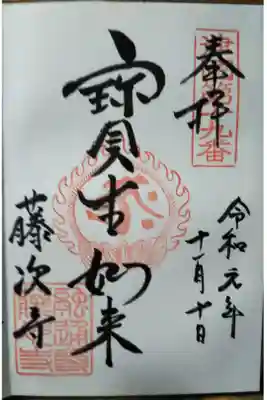 奉拝
寶生如来
藤次寺
令和元年
十一月十日